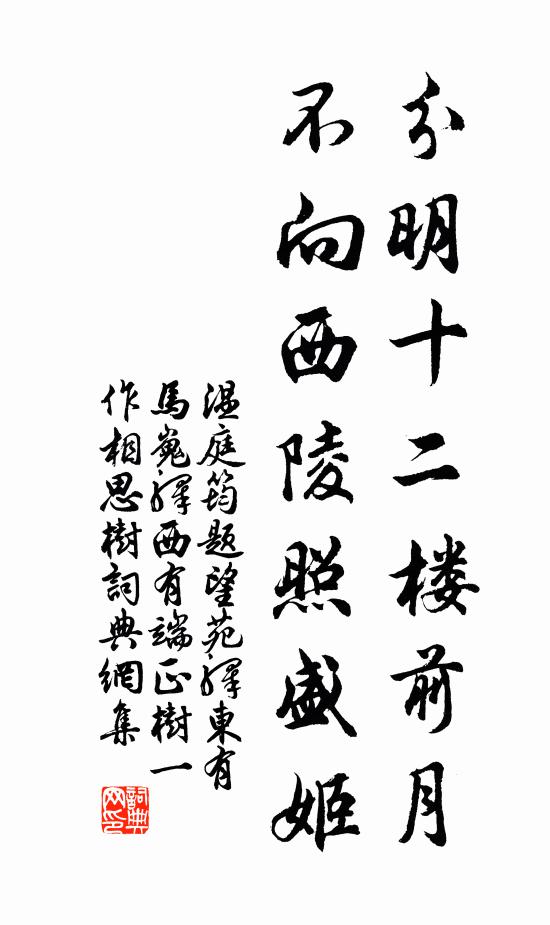 分明十二楼前月
不向西陵照盛姬
温庭筠题望苑驿東有
馬嵬驿西有端正樹一
作相思樹詞典網集
詞典网印